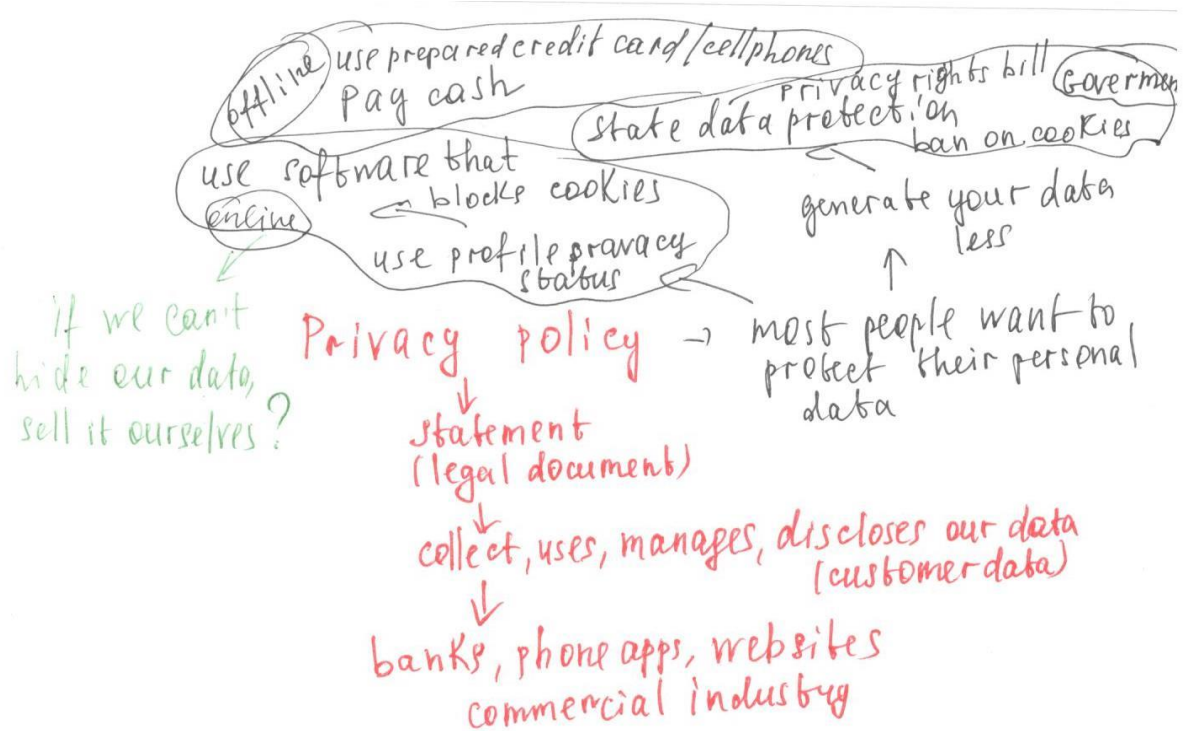 offline
use prepared credit card/cellphones
pay cash
privacy rights bill
Govermen
state data protection
ban on cookies
use software that
blocks cookies
online
use profile pravacy
status
generate your data
less
if we can't
hide our data,
sell it ourselves?
Privacy policy →
most people want to
protect their personal
data
statement
(legal document)
collect, uses, manages, discloses our data
(customer data)
banks, phone apps, websites
commercial industry